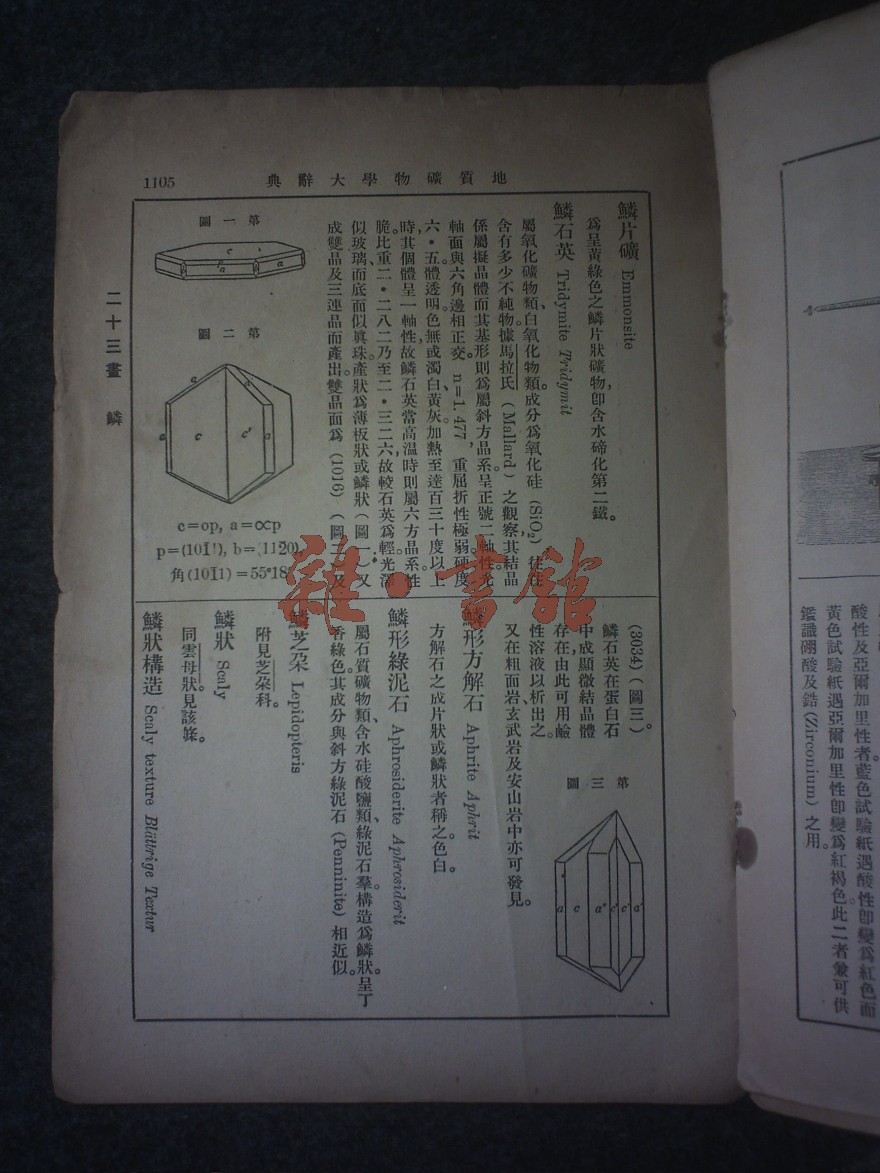 1105
典辭大學物礦質地
二十三畫 鱗
鱗片礦 Emmonsite
爲呈黃綠色之鱗片狀礦物,卽含水碲化第二鐵。
鱗石英 Tridymite Tridymit
屬氧化礦物類、白氧化物類。成分爲氧化硅(SiO₂)往往
含有多少不純物據馬拉氏(Mallard)之觀察,其結晶
係屬擬晶體而其基形則爲屬斜方晶系,呈正號二軸性。光
軸面與六角邊相正交。n=1.477,重屈折性極弱。硬度
六·五。體透明。色無或濁白、黃灰。加熱至達百三十度以上
時,其個體呈一軸性,故鱗石英當高温時則屬六方晶系。性
脆,比重二·二八二乃至二·三二六,故較石英爲輕。光澤
似玻璃,而底面似眞珠。產狀爲薄板狀或鱗狀(圖一)又
成雙晶及三連晶而產出。雙晶面爲(1016)(圖二)及
圖一第
c
a
圖二第
a
a
c
c'
a
c=op, a=∞p
p=(101̄1), b=(112̄0)
角(101̄1)=55°18'
(3034)(圖三)。
鱗石英在蛋白石
中,成顯微結晶體
存在,由此可用鹼
性溶液以析出之。
又在粗面岩、玄武岩及安山岩中亦可發見。
圖三第
a c a'' c' c' a'
鱗形方解石 Aphrite Aphrit
方解石之成片狀或鱗狀者稱之。色白。
鱗形綠泥石 Aphrosiderite Aphrosiderit
屬石質礦物類、含水硅酸鹽類、綠泥石羣。構造爲鱗狀。呈丁
香綠色。其成分與斜方綠泥石(Penninite)相近似。
鱗芝朶 Lepidopteris
附見芝朶科。
鱗狀 Scaly
同雲母狀。見該條。
鱗狀構造 Scaly texture Blättrige Textur
酸性及亞爾加里性者。藍色試驗紙遇酸性卽變爲紅色,而
黃色試驗紙遇亞爾加里性卽變爲紅褐色。此二者兼可供
鑑識硼酸及鋯(Zirconium)之用。
雜·書館